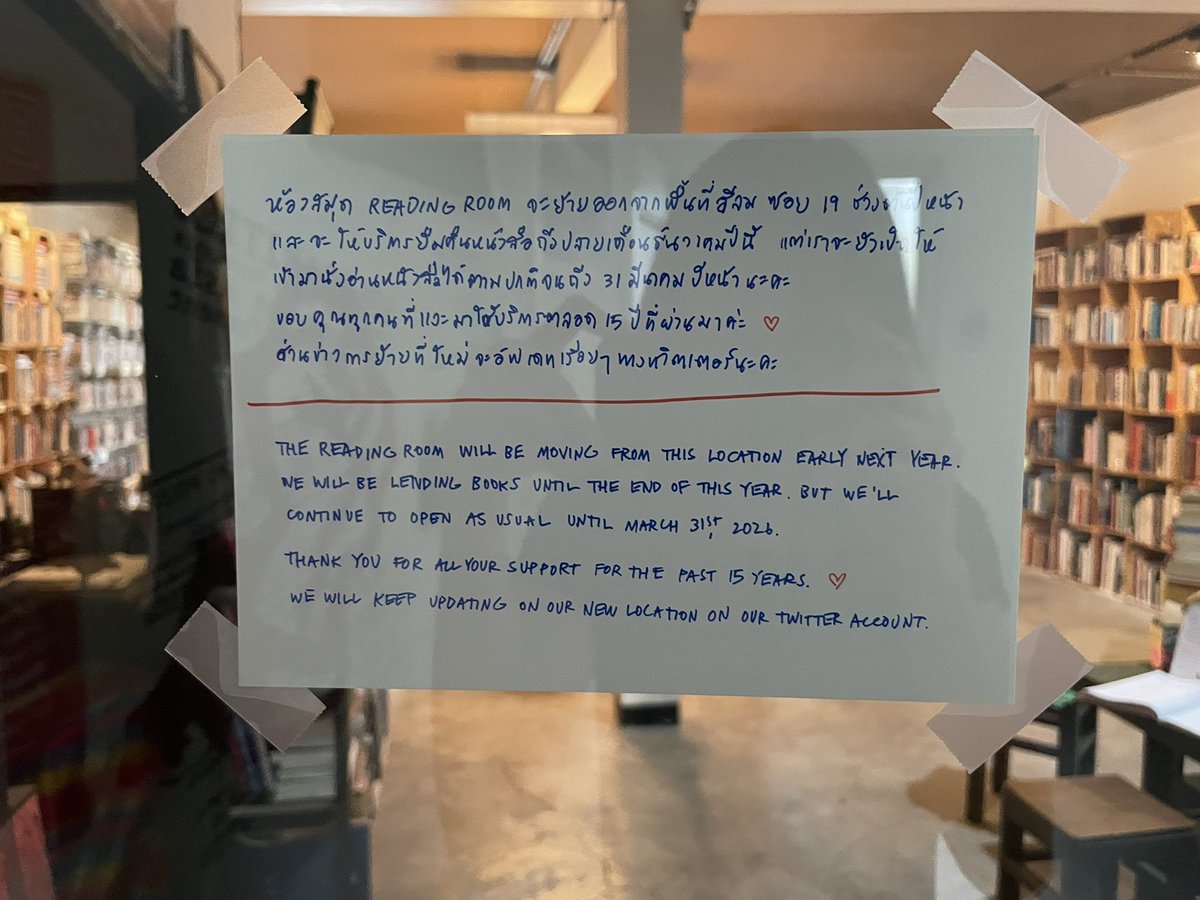 ห้องสมุด READING ROOM จะย้ายออกจากพื้นที่สีลม ซอย 19 ช่วงต้นปีหน้า
และจะให้บริการยืมคืนหนังสือถึงปลายเดือนธันวาคมปีนี้ แต่เราจะยังเปิดให้
เข้ามานั่งอ่านหนังสือได้ตามปกติจนถึง 31 มีนาคม ปีหน้านะคะ
ขอบคุณทุกคนที่แวะมาใช้บริการตลอด 15 ปีที่ผ่านมาค่ะ ♡
ส่วนข่าวการย้ายที่ใหม่จะอัพเดทเรื่อยๆ ทางทวิตเตอร์นะคะ
THE READING ROOM WILL BE MOVING FROM THIS LOCATION EARLY NEXT YEAR.
WE WILL BE LENDING BOOKS UNTIL THE END OF THIS YEAR. BUT WE'LL
CONTINUE TO OPEN AS USUAL UNTIL MARCH 31ST, 2026.
THANK YOU FOR ALL YOUR SUPPORT FOR THE PAST 15 YEARS. ♡
WE WILL KEEP UPDATING ON OUR NEW LOCATION ON OUR TWITTER ACCOUNT.